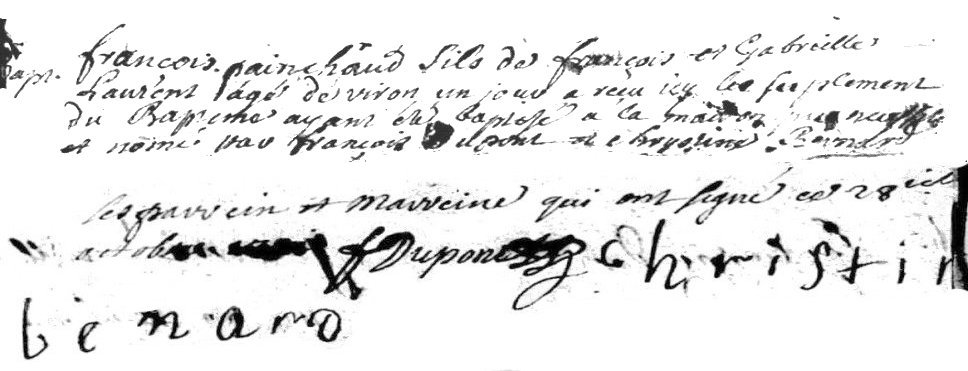 Bapt. françois painchaud fils de françois et Gabreille
Laurent agé de viron un jour a reçu icy le suplement
du Bapteme ayant été baptisé a la maison
et nomé par françois Dupont et chrystine Bernard
ses parrein et Marreine qui ont signé ce 28
octobre f Dupont christin
benard